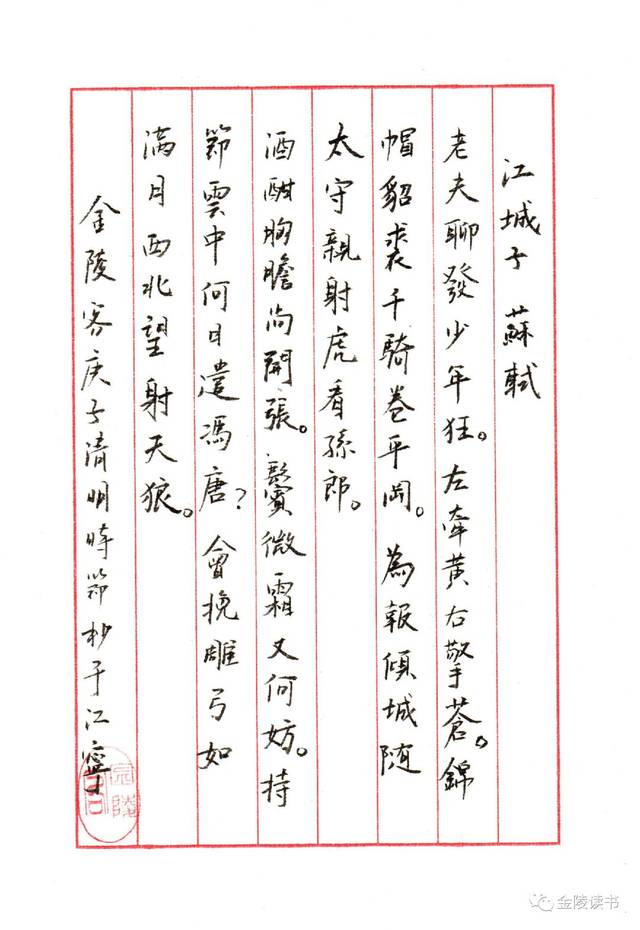 江城子 蘇軾
老夫聊發少年狂。左牽黄右擎蒼。錦
帽貂裘千騎卷平岡。為報傾城随
太守親射虎看孫郎。
酒酣胸膽尚開張。鬢微霜又何妨。持
節雲中何日遣馮唐？會挽雕弓如
满月西北望射天狼。
金陵客庚子清明時節抄于江寧
金陵读书